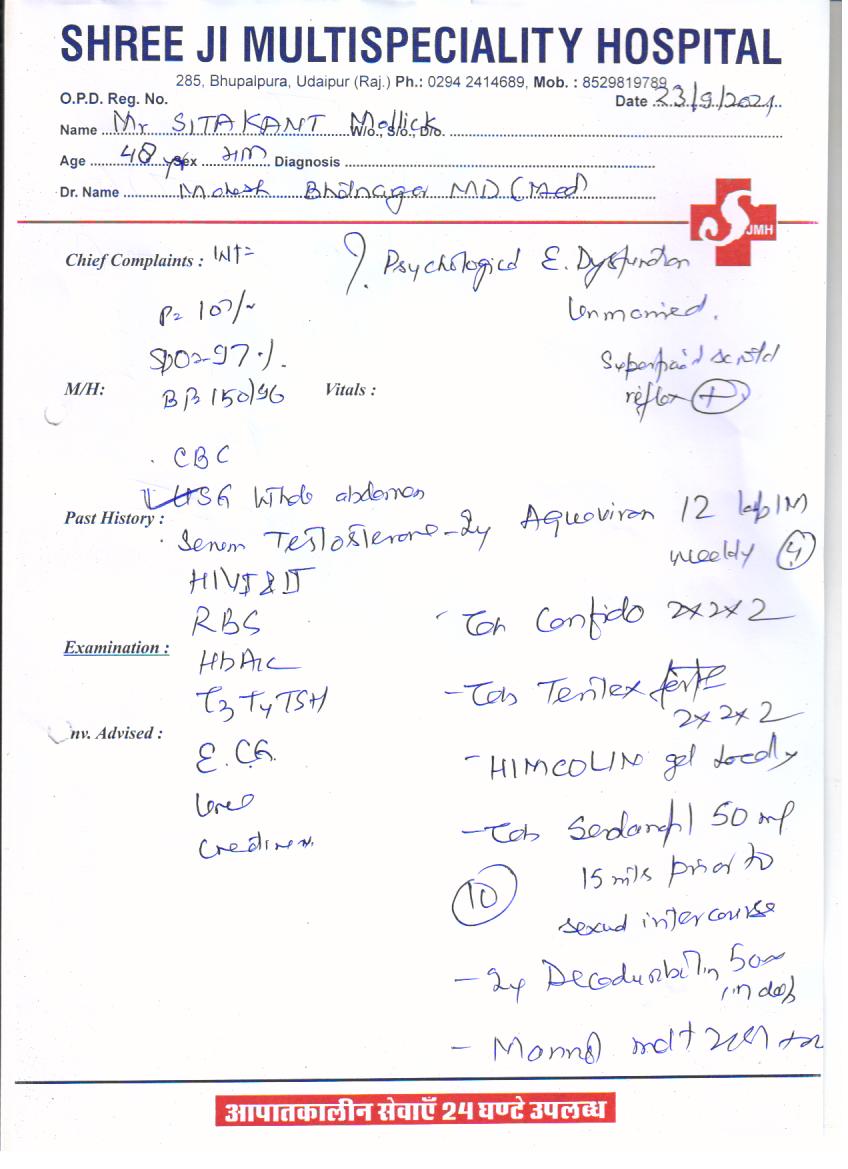 SHREE JI MULTISPECIALITY HOSPITAL
285, Bhupalpura, Udaipur (Raj.) Ph.: 0294 2414689, Mob. : 8529819789
O.P.D. Reg. No. Date 23/9/2021
Name Mr SITAKANT Mollick W/o., S/o., D/o.
Age 48 yrs Sex Diagnosis
Dr. Name Mahesh Bhatnagar MD (Med)
JMH
Chief Complaints : Wt= ? Psychological E. Dysfunction
P= 100/- Unmarried.
SPO2-97%. Superficial scrotal
M/H: BP 150/96 Vitals : reflex +
CBC
USG Whole abdomen
Past History : Aquaviron 12 IM
Serum Testosterone weekly
HIV I & II
RBS Tab Confido 2x2x2
Examination : HbA1c
T3 T4 TSH - Tab Tentex forte
2x2x2
Inv. Advised : E.CG. - HIMCOLIN gel locally
Urea
Creatinine. - Tab 50 mg
10 15 mts prior to
sexual intercourse
- 50
-
आपातकालीन सेवाएँ 24 घण्टे उपलब्ध